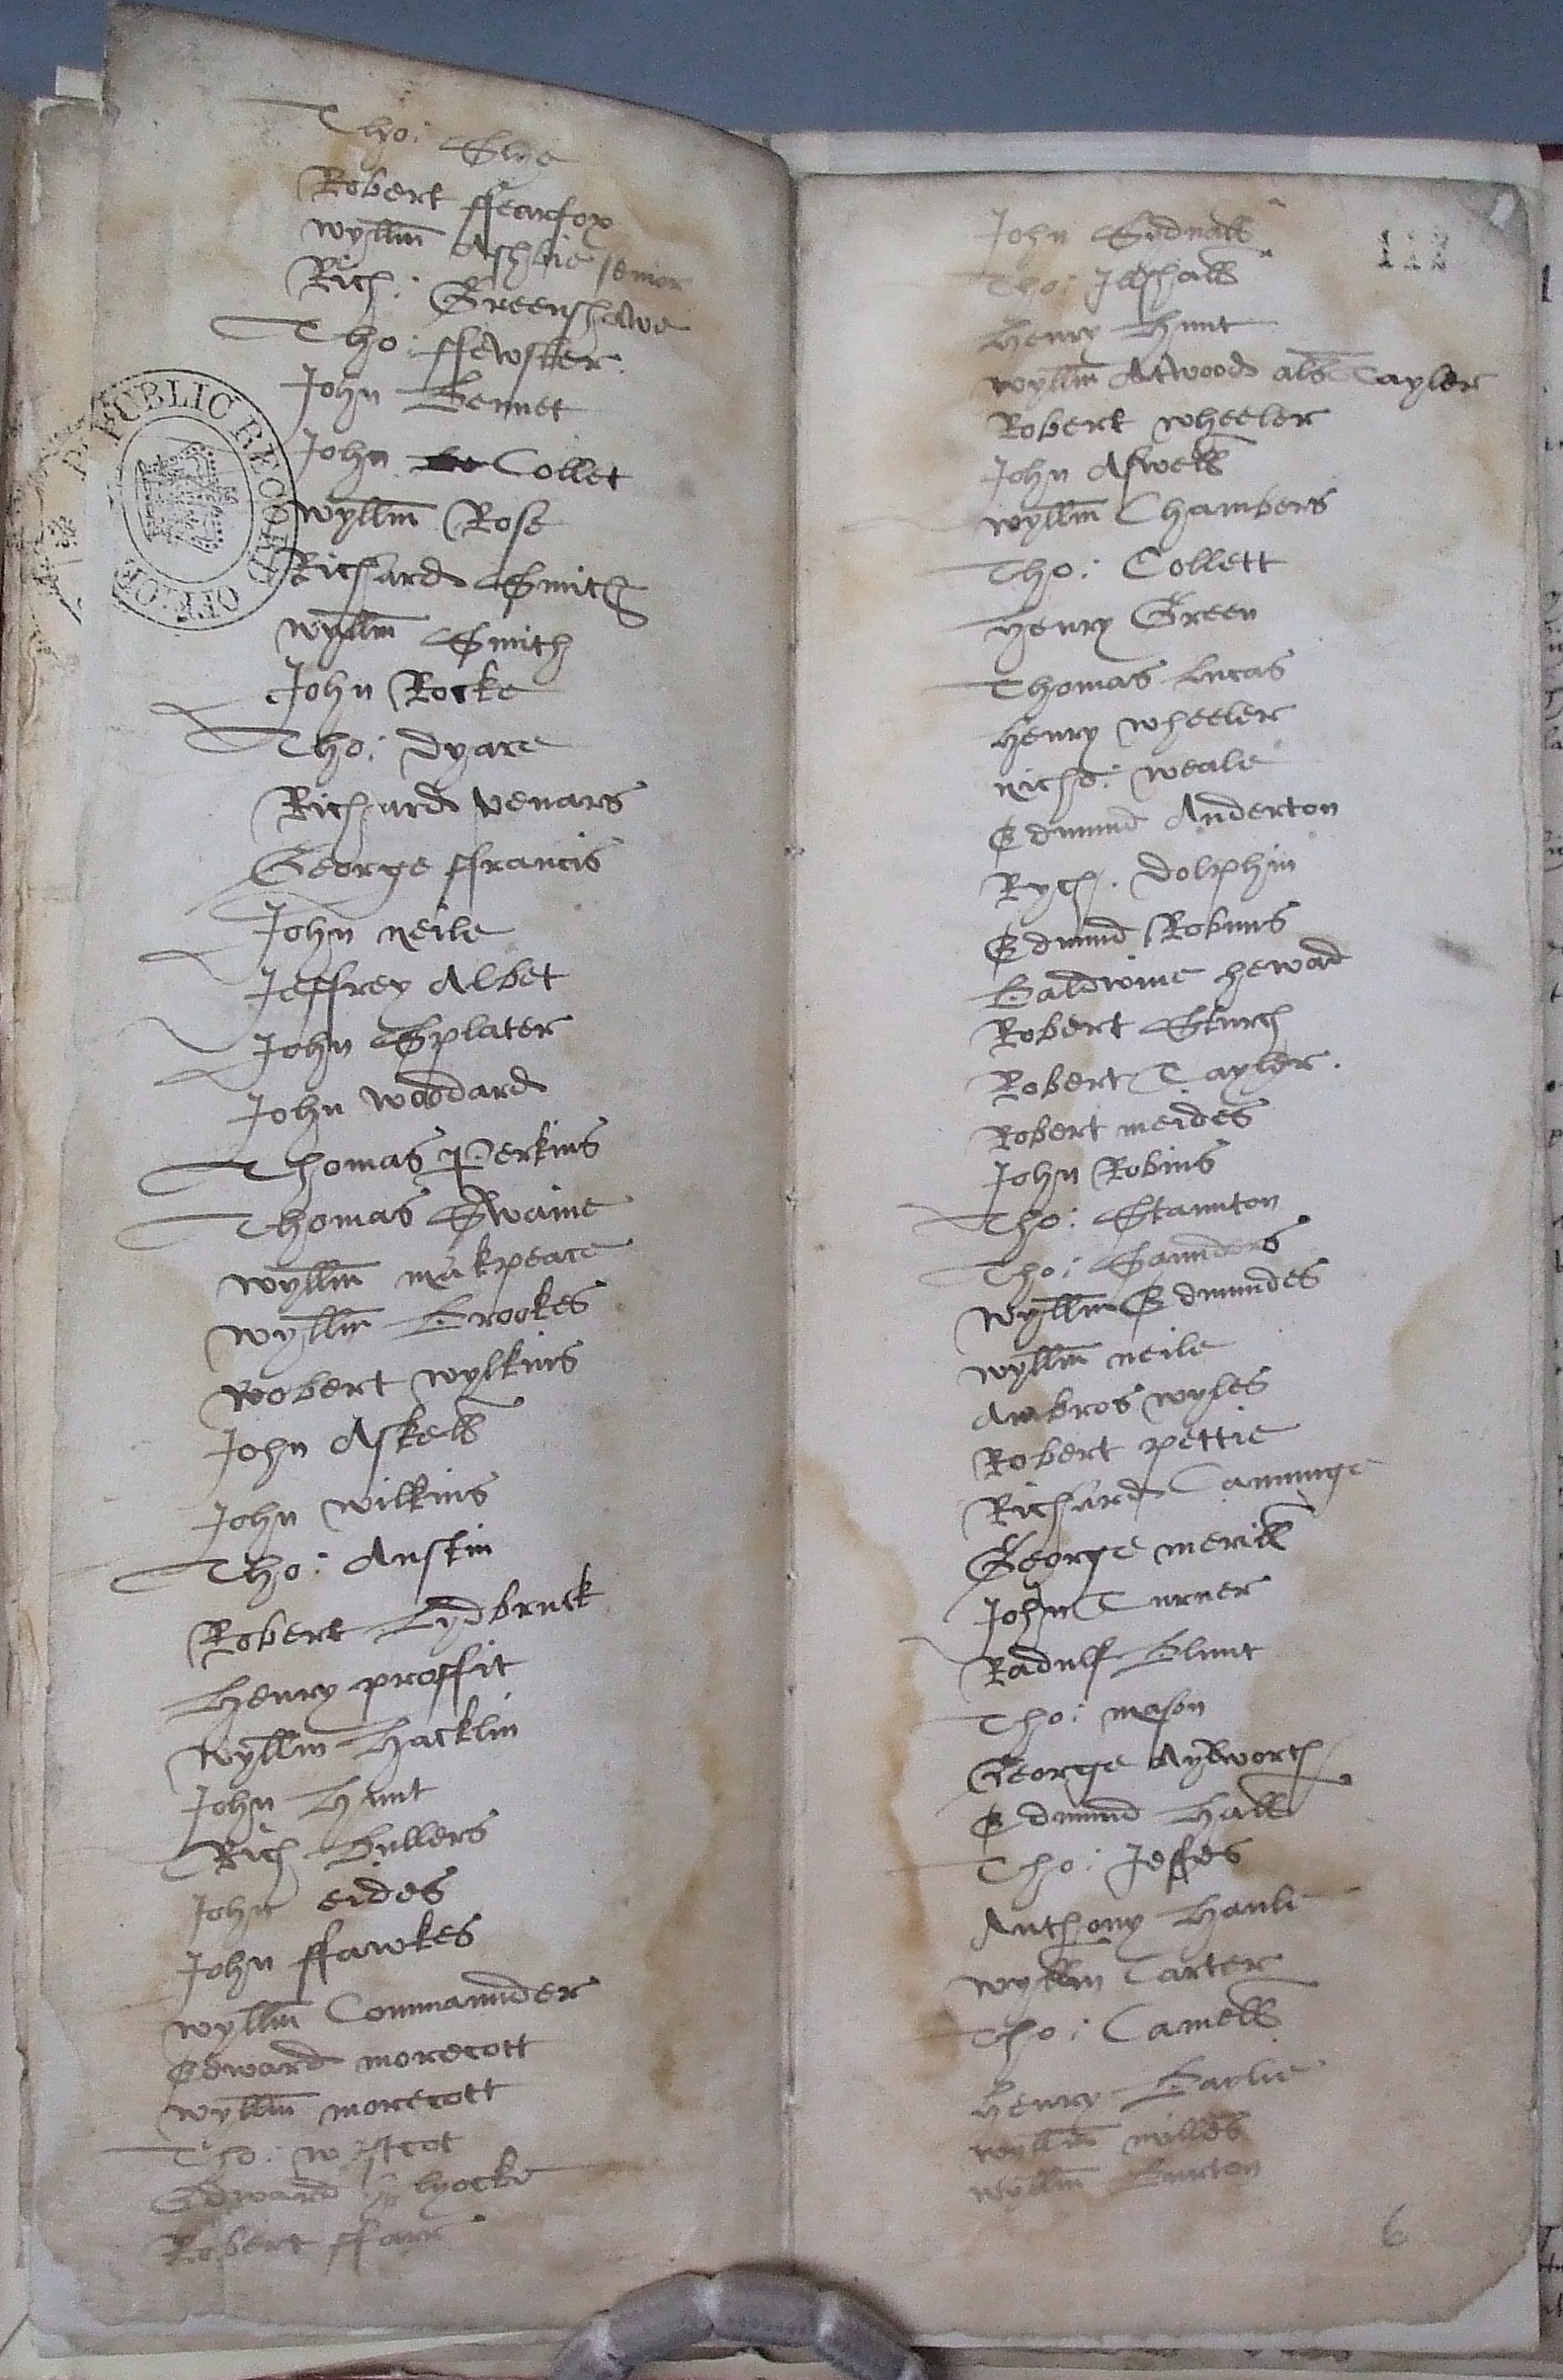 Tho: Slye
Robert ffearfox
Wyllm Ashbie senior
Rich: Greenshawe
Tho: ffewster
John Bennet
John Collet
Wyllm Rose
Richard Smith
Wyllm Smith
John Rocke
Tho: Dyare
Richard Venars
George ffrancis
John Neile
Jeffrey Albet
John Splater
John Woddard
Thomas Perkins
Thomas Swaine
Wyllm Makpeace
Wyllm Brookes
Robert Wylkins
John Askell
John Wilkins
Tho: Austin
Robert Lydbruck
Henry Proffit
Wyllm Hacklin
John Hunt
Rich Bullers
John Eides
John ffawkes
Wyllm Commaunder
Edward Morecott
Wyllm Morecott
Tho: Westcot
Edward Lyocke
Robert ffaux
PUBLIC RECORD OFFICE
John
Tho:
Henry Hunt
Wyllm Atwood als Tayler
Robert Wheeler
John Aswell
Wyllm Chambers
Tho: Collett
Henry Green
Thomas Lucas
Henry Wheeler
Nicho: Weale
Edmund Anderton
Rych. Dolphin
Edmund Robins
Baldwine Heward
Robert Sturch
Robert Tayler.
Robert Meides
John Robins
Tho: Staunton
Tho: Saunders
Wyllm Edmundes
Wyllm Neile
Ambros Wyles
Robert Pettie
Richard Canninge
George Merill
John Turner
Radulf Blunt
Tho: Mason
George Aylworth
Edmund Hall
Tho: Jeffes
Anthony Hanls
Wyllm Carter
Tho: Camell
Henry Baylie
Wyllm Milles
Wyllm Burton
6